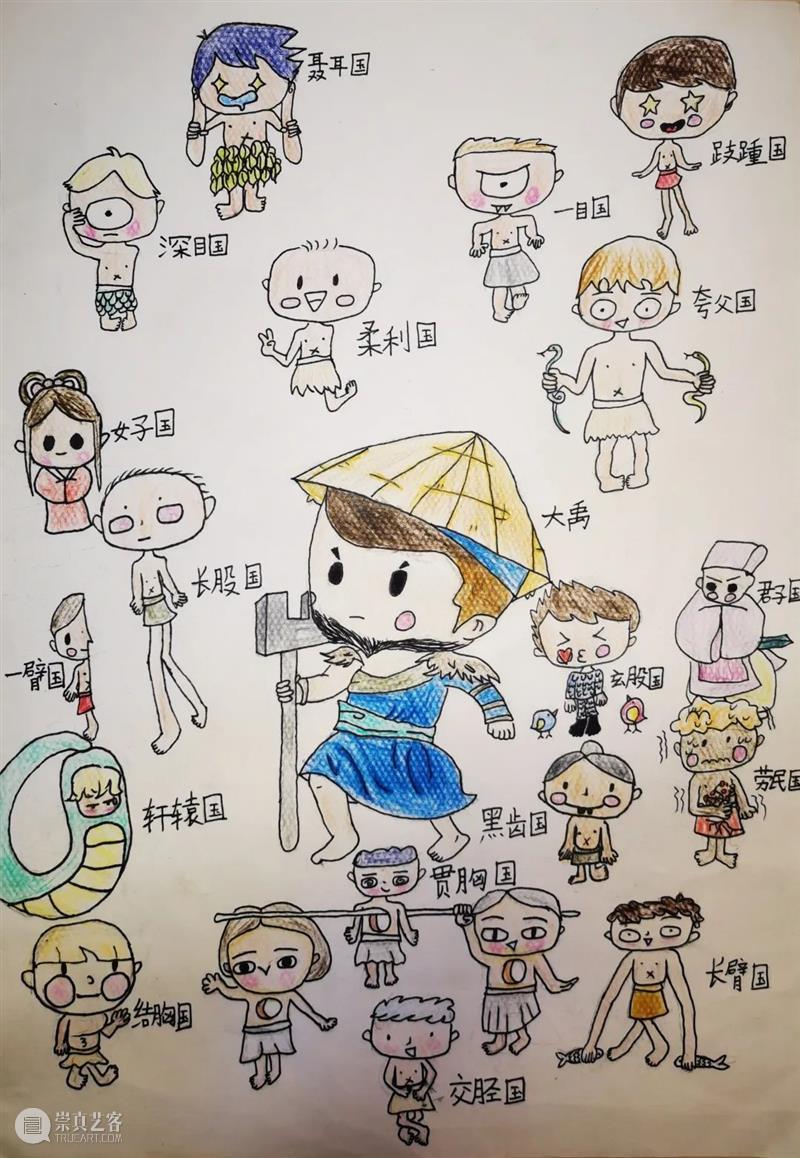 聂耳国
跂踵国
深目国
一目国
柔利国
夸父国
女子国
大禹
长股国
君子国
一臂国
玄股国
轩辕国
黑齿国
劳民国
贯胸国
长臂国
结胸国
交胫国
崇真艺客
WWW.TRUEART.COM